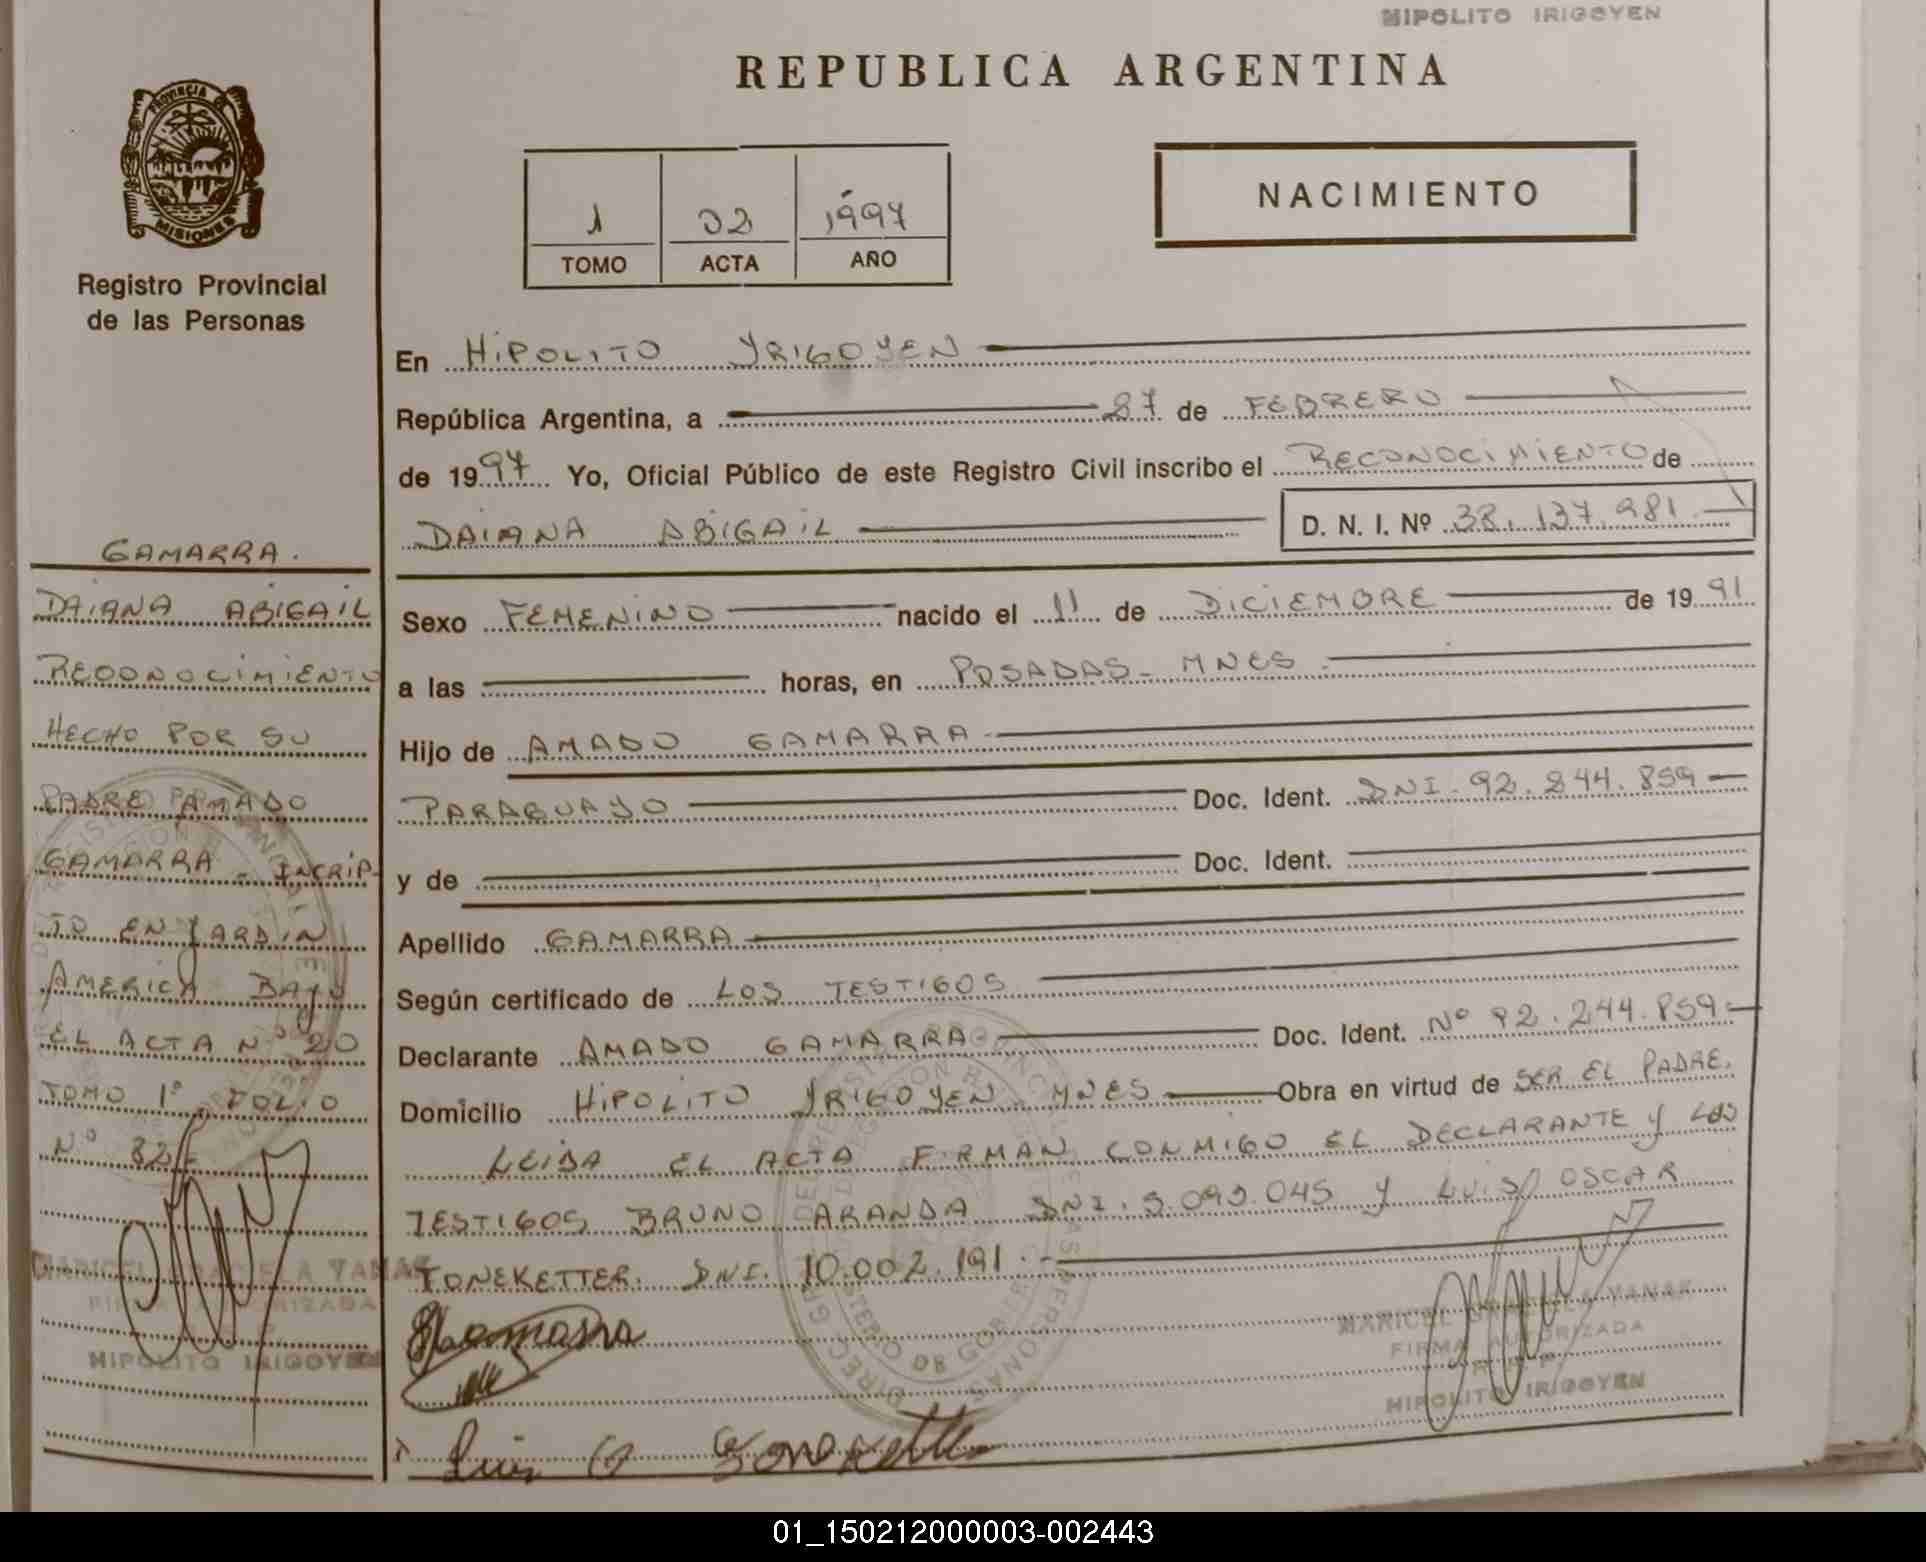 HIPOLITO IRIGOYEN
REPUBLICA ARGENTINA
PROVINCIA DE
MISIONES
Registro Provincial
de las Personas
1 02 1997
TOMO ACTA AÑO
NACIMIENTO
En HIPOLITO YRIGOYEN
República Argentina, a 27 de FEBRERO
de 1997 Yo, Oficial Público de este Registro Civil inscribo el RECONOCIMIENTO de
DAIANA ABIGAIL D. N. I. Nº 38.137.981
Sexo FEMENINO nacido el 11 de DICIEMBRE de 1991
a las horas, en POSADAS - MNES.
Hijo de AMADO GAMARRA
PARAGUAYO Doc. Ident. DNI. 92.244.859
y de Doc. Ident.
Apellido GAMARRA
Según certificado de LOS TESTIGOS
Declarante AMADO GAMARRA Doc. Ident. Nº 92.244.859
Domicilio HIPOLITO YRIGOYEN MNES Obra en virtud de SER EL PADRE.
LEIDA EL ACTA FIRMAN CONMIGO EL DECLARANTE Y LOS
TESTIGOS BRUNO ARANDA DNI. Y LUIS OSCAR
TONEKETTER. DNI. 10.002.191.
GAMARRA.
DAIANA ABIGAIL
RECONOCIMIENTO
HECHO POR SU
PADRE AMADO
GAMARRA - INCRIP-
TO EN JARDIN
AMERICA BAJO
EL ACTA Nº 20
TOMO 1º FOLIO
Nº 32
MARICEL GRACIELA YANAK
FIRMA AUTORIZADA
HIPOLITO IRIGOYEN
MARICEL GRACIELA YANAK
FIRMA AUTORIZADA
R. P. P.
HIPOLITO IRIGOYEN
01_150212000003-002443